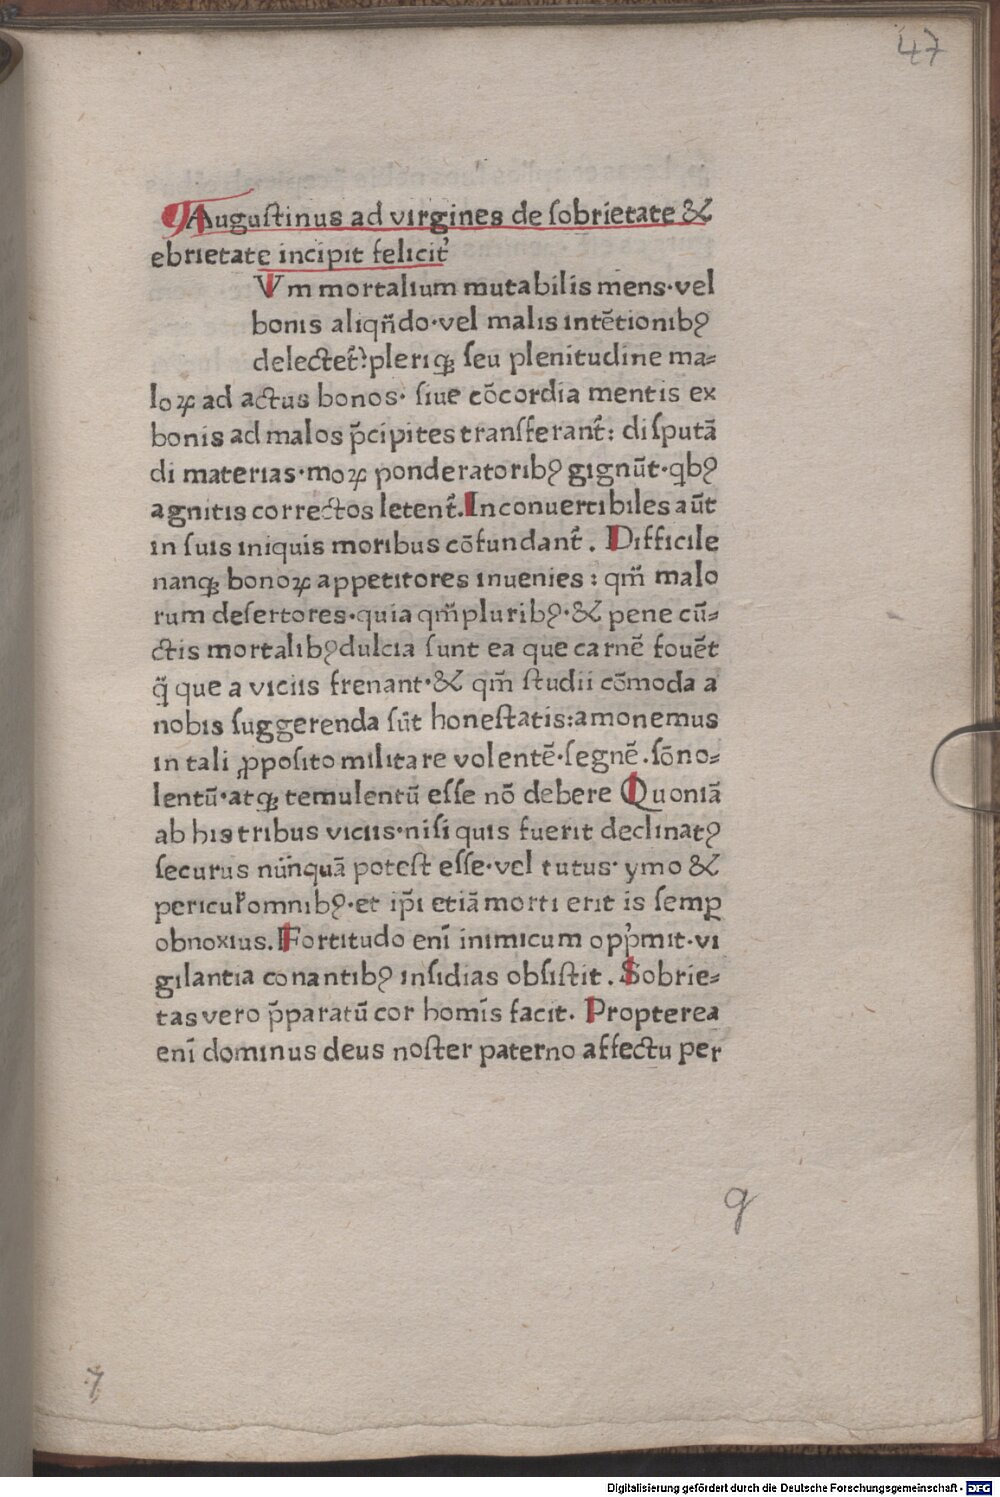 47
Augustinus ad virgines de ſobrietate &
ebrietate incipit felicit᷑
Vm mortalium mutabilis mens·vel
bonis aliqñdo·vel malis intētionibꝰ
delectet᷑?pleriqꝫ ſeu plenitudine ma⸗
loꝝ ad actus bonos· ſiue cōcordia mentis ex
bonis ad malos p̄cipites tranſferant᷑: diſputā
di materias·moꝝ ponderatoribꝰ gignūt·qbꝰ
agnitis correctos letent᷑. Inconuertibiles aūt
in ſuis iniquis moribus cōfundant᷑. Difficile
nanqꝫ bonoꝝ appetitores inuenies: qm̄ malo
rum deſertores·quia qm̄pluribꝰ·& pene cū⸗
ctis mortalibꝰ dulcia ſunt ea que carnē fouēt
q̄ que a viciis frenant·& qm̄ ſtudii cōmoda a
nobis ſuggerenda ſūt honeſtatis:amonemus
in tali ꝓpoſito militare volentē·ſegnē.ſōno⸗
lentū·atqꝫ temulentū eſſe nō debere Quoniā
ab his tribus viciis·niſi quis fuerit declinatꝰ
ſecurus nūnquā poteſt eſſe·vel tutus· ymo &
pericul̓ omnibꝰ·et ip̄i etiā morti erit is ſemꝑ
obnoxius. Fortitudo enī inimicum opp̄mit·vi
gilantia conantibꝰ inſidias obſiſtit. Sobrie⸗
tas vero p̄paratū cor homīs facit. Propterea
enī dominus deus noſter paterno affectu per
g
7
Digitalisierung gefördert durch die Deutsche Forschungsgemeinschaft - DFG